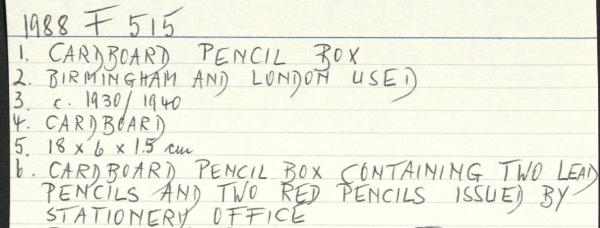 1988 F 515
1. CARDBOARD PENCIL BOX
2. BIRMINGHAM AND LONDON USED
3. c. 1930/1940
4. CARDBOARD
5. 18 x 6 x 1.5 cm
6. CARDBOARD PENCIL BOX CONTAINING TWO LEAD
PENCILS AND TWO RED PENCILS ISSUED BY
STATIONERY OFFICE